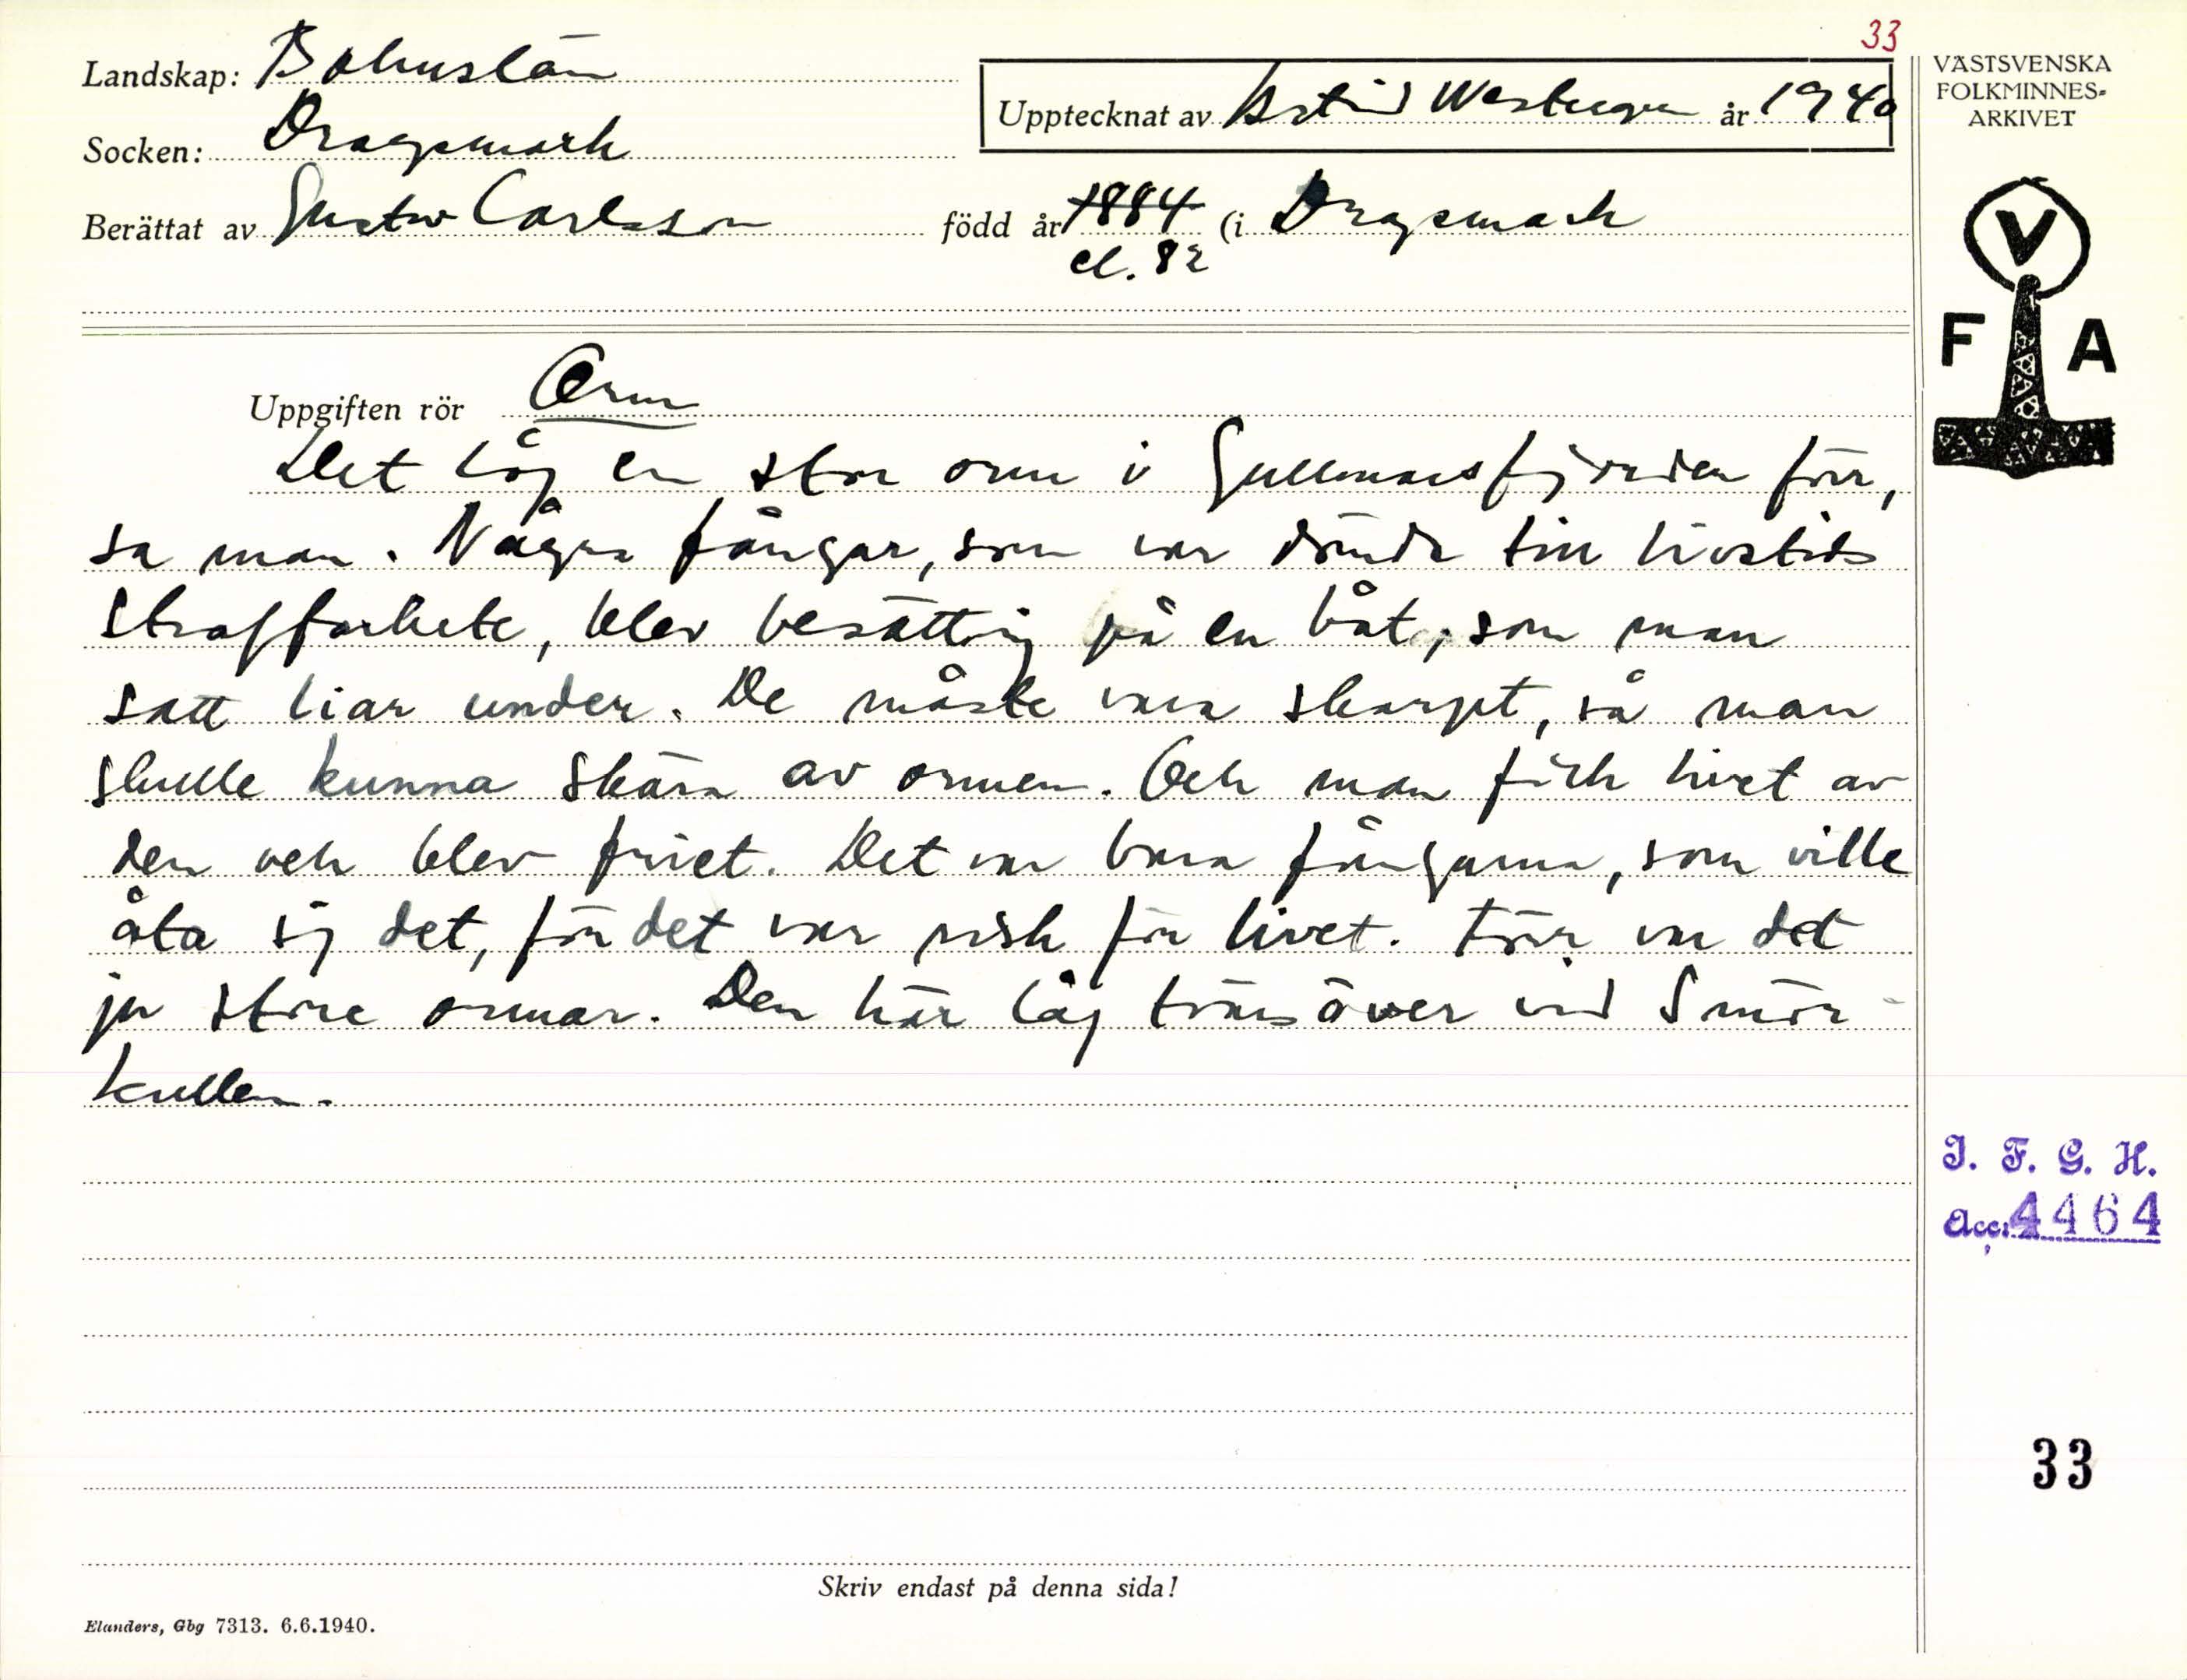 33
Landskap: Bohuslän
Upptecknat av Astrid Westergren år 1940
Socken: Dragsmark
Berättat av Gustav Carlsson född år 1884 (i Dragsmark
el. 82
Uppgiften rör Orm
Det låg en stor orm i Gullmarsfjorden förr,
sa man. Några fångar, som var dömda till livstids
straffarbete, blev besättning på en båt, som man
satt liar under. De måste vara skarpt, så man
skulle kunna skära av ormen. Och man fick livet av
den och blev friet. Det var bara fångarna, som ville
åta sig det, för det var risk för livet. Förr var det
ju store ormar. Den här låg tvärsöver vid Smör-
kullen.
Skriv endast på denna sida!
Elanders, Gbg 7313. 6.6.1940.
VÄSTSVENSKA
FOLKMINNES-
ARKIVET
V
F A
I. F. G. H.
Acc: 4464
33